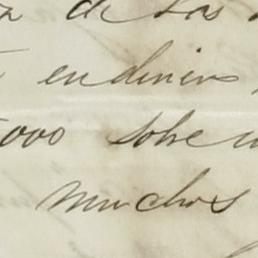 de las
en dinero
000 sobre
muchos